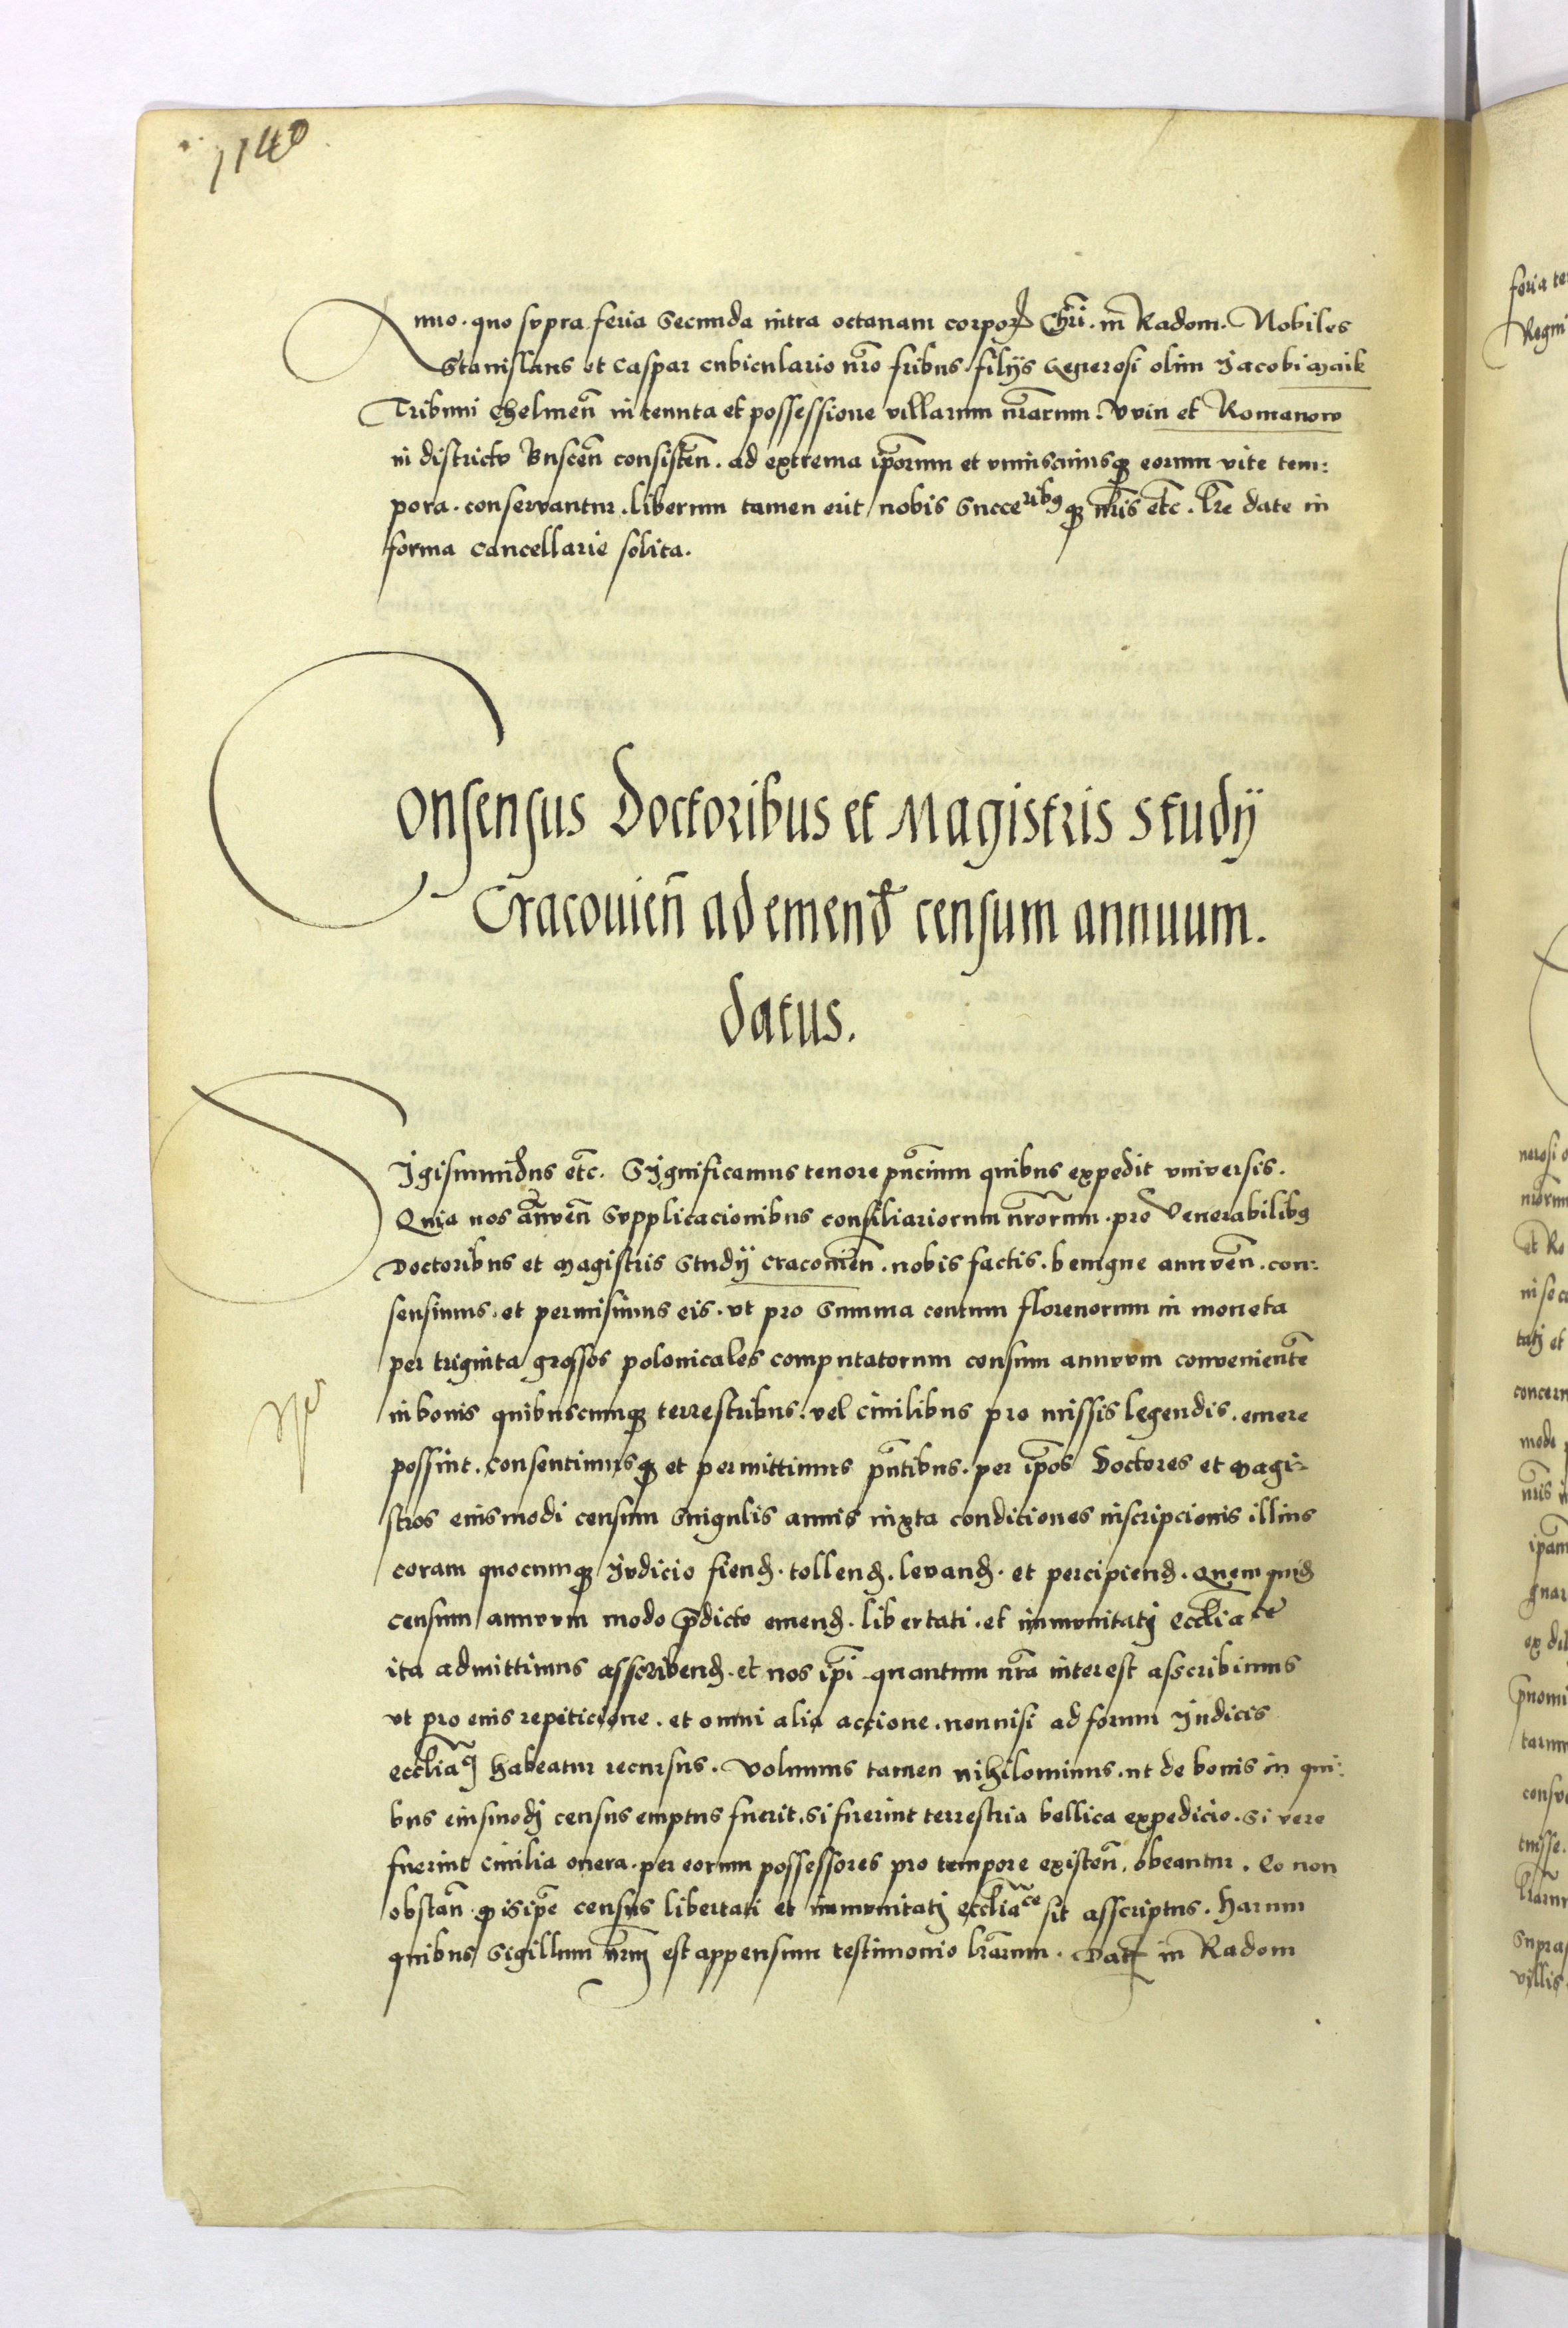 1140
Anno. quo supra feria Secunda intra octavam corporis Chri. in Radom. Nobiles
Stanislaus et Caspar cubiculario nro fribus filijs Generosi olim Jacobi Maik
Tribuni Chelmen in tenuta et possessione villarum nrarum. Uvin et Romanow
in districto Buscen consisten. ad extrema iporum et uniuscuiusque eorum vite tem:
pora. conservantur. liberum tamen erit nobis Succeribus que nris etc. lre date in
forma Cancellarie solita.
Consensus Doctoribus et Magistris Studÿ
Cracovien ad emend censum annuum.
datus.
Sigismundus etc. Significamus tenore pncium quibus expedit universis.
Quia nos annuen Supplicacionibus consiliariorum nrorum. pro Venerabilibus
Doctoribus et Magistris Studÿ Cracovien. nobis factis. benigne annuen. con:
sensimus. et permisimus eis. ut pro Summa centum florenorum in moneta
per triginta grossos polonicales computatorum censum annuum convenientem
in bonis quibuscumque terrestribus. vel Civilibus pro missis legendis. emere
possint. Consentimusque et permittimus pntibus. per ipos Doctores et Magi:
stros eiusmodi censum Singulis annis iuxta conditiones inscripcionis illius
coram quocumque Judicio fiend. tollend. levand. et percipiend. Quem quid
censum annuum modo predicto emend. libertati. et immunitati Ecclia ce
ita admittimus asscribend. et nos ipi quantum nra interest asscribimus
ut pro eius repeticione. et omni alia accione. nonnisi ad forum Judicis
eccliaci habeatur recursus. Volumus tamen nihilominus. ut de bonis in qui:
bus eiusmodi census emptus fuerit. si fuerint terrestria bellica expedicio. Si vero
fuerint Civilia onera. per eorum possessores pro tempore existen. obeantur. Eo non
obstan. quod is ipe census libertati et immunitati eccliace sit asscriptus. Harum
quibus Sigillum nrm est appensum testimonio lrarum. Dat in Radom